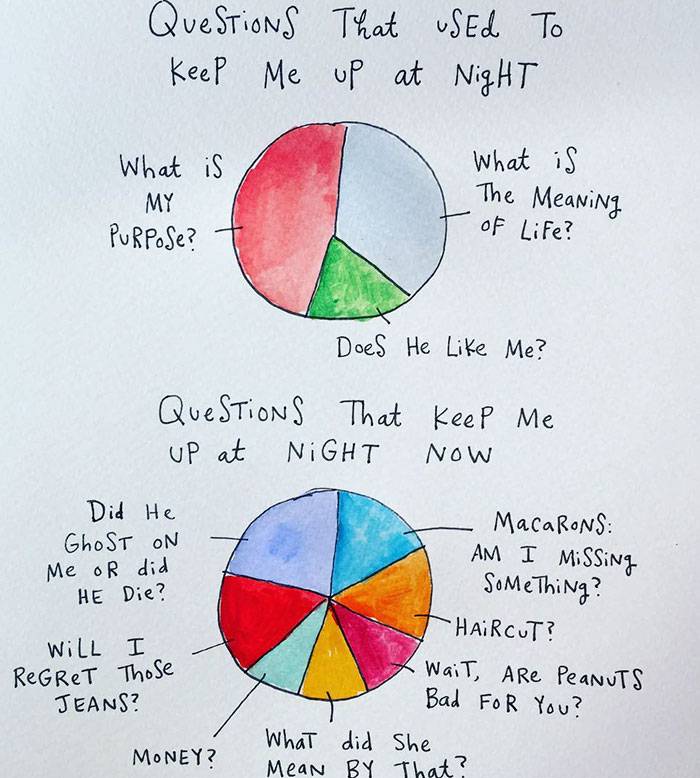 QUeSTiONS THat USEd To
KeeP Me UP at NigHT
What iS
MY
PURPoSe?
What iS
The MeaNiNg
oF LiFe?
DoeS He Like Me?
QUeSTiONS That KeeP Me
UP at NiGHT NOW
Did He
GhoST oN
Me oR did
HE Die?
MacaRoNS:
AM I MiSSiNg
SoMeThiNg?
HAiRcuT?
WaiT, ARe PeaNUTS
Bad FoR You?
WiLL I
ReGReT ThoSe
JEANS?
MoNEY?
WhaT did She
MeaN BY That?